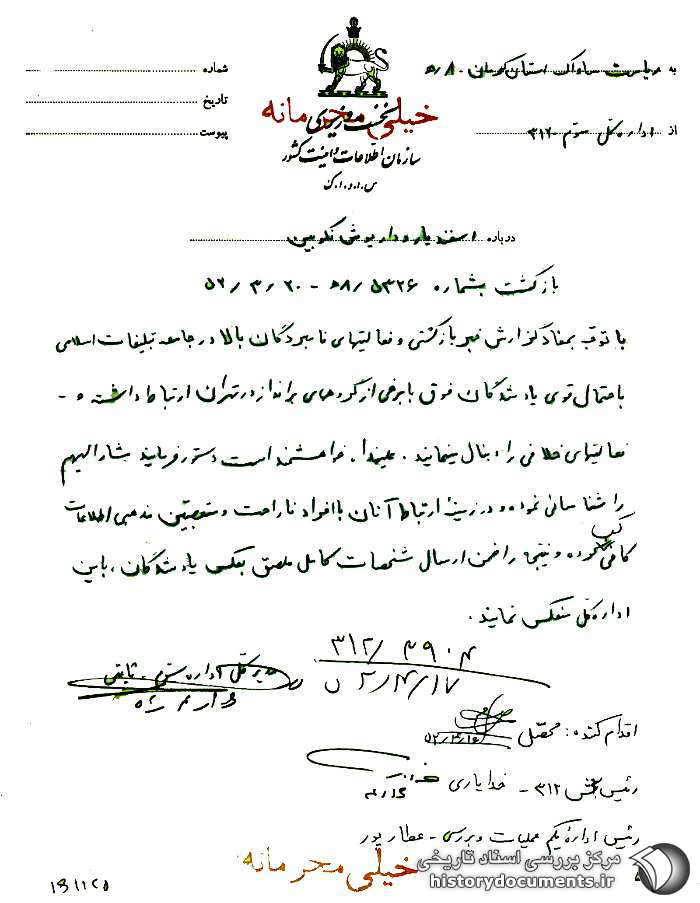 به ریاست ساواک استان کرمان - ۸/ه
شماره
خیلی محرمانه
نخست وزیری
تاریخ
از اداره کل سوم - ۳۱۲
پیوست
سازمان اطلاعات و امنیت کشور
س.ا.و.ا.ک
درباره اسفندیار و داریوش نکوبین
بازگشت بشماره ۵۳۲۶/ه۸ - ۵۲/۳/۲۰
با توجه بمفاد گزارش خبر بازگشتی و فعالیتهای نامبردگان بالا در جامعه تبلیغات اسلامی
باحتمال قوی یاد شدگان فوق با برخی از گروههای برانداز در تهران ارتباط داشته و -
فعالیتهای خلافی را دنبال مینمایند . علیهذا ، خواهشمند است دستور فرمایند مشارالیهم
را شناسائی نموده و در زمینه ارتباط آنان با افراد ناراحت و متعصبین مذهبی اطلاعات
کافی کسب نموده و نتیجه را ضمن ارسال مشخصات کامل ملصق بعکس یاد شدگان ، باین
اداره کل منعکس نمایند .
مدیر کل اداره سوم - ثابتی
۳۱۲/۳۹۰۴
۵۲/۴/۱۷
اقدام کننده : محصلی
۵۲/۴/۱۶
رئیس بخش ۳۱۲ - خدایاری
رئیس اداره یکم عملیات و بررسی - عطارپور
خیلی محرمانه
مرکز بررسی اسناد تاریخی
historydocuments.ir